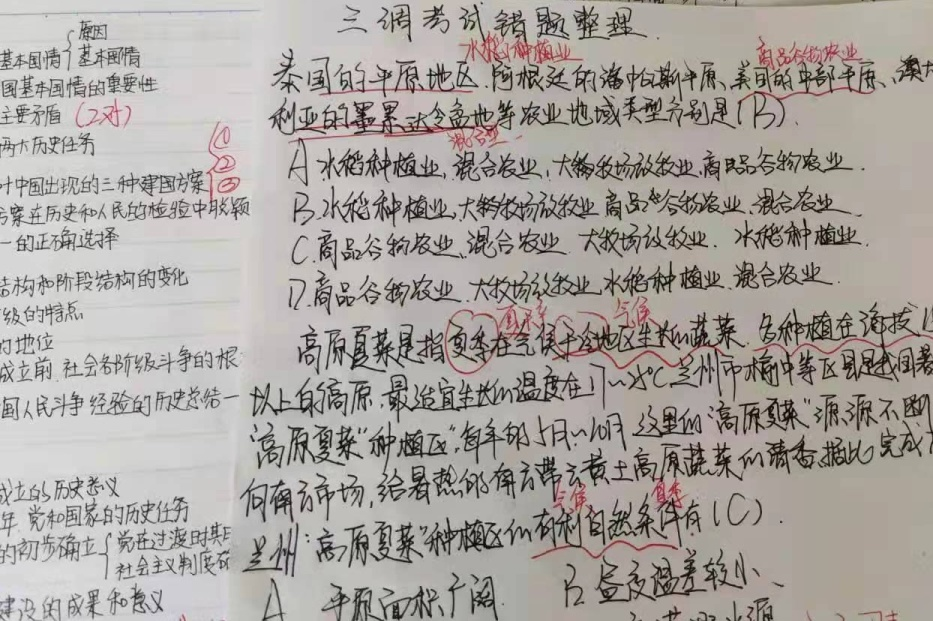 原因
基本国情 基本国情
国基本国情的重要性
主要矛盾 (2对)
两大历史任务
中国出现的三种建国方案 ① ② ③
方案在历史和人民的检验中
一的正确选择
结构和阶段结构的变化
级的特点
的地位
成立前.社会各阶级斗争的根
国人民斗争经验的历史总结一
成立的历史意义
年 党和国家的历史任务
的初步确立 党在过渡时期
社会主义制度
建设的成果和意义
三调考试错题整理
水稻种植业 商品谷物农业
泰国的平原地区.阿根廷的潘帕斯平原、美国的中部平原、澳大
利亚的墨累达令盆地等农业地域类型分别是(B).
混合型一
A 水稻种植业,混合农业,大牧场放牧业,商品谷物农业.
B.水稻种植业,大牧场放牧业 商品谷物农业,混合农业
C.商品谷物农业,混合农业 大牧场放牧业. 水稻种植业.
D.商品谷物农业.大牧场放牧业 水稻种植业.混合农业.
气候
高原夏菜是指夏季在气候干冷地区生长的蔬菜.多种植在海拔
以上的高原.最适宜生长的温度在17~25℃ 兰州市榆中等区县是我国著
"高原夏菜"种植区"每年的5月~10月 这里的"高原夏菜"源源不断
向南方市场,给暑热的南方带去黄土高原蔬菜的清香.据此完成
气候 夏季
兰州"高原夏菜"种植区的有利自然条件有(C).
A 平原面积广阔 B 昼夜温差较小、
水源